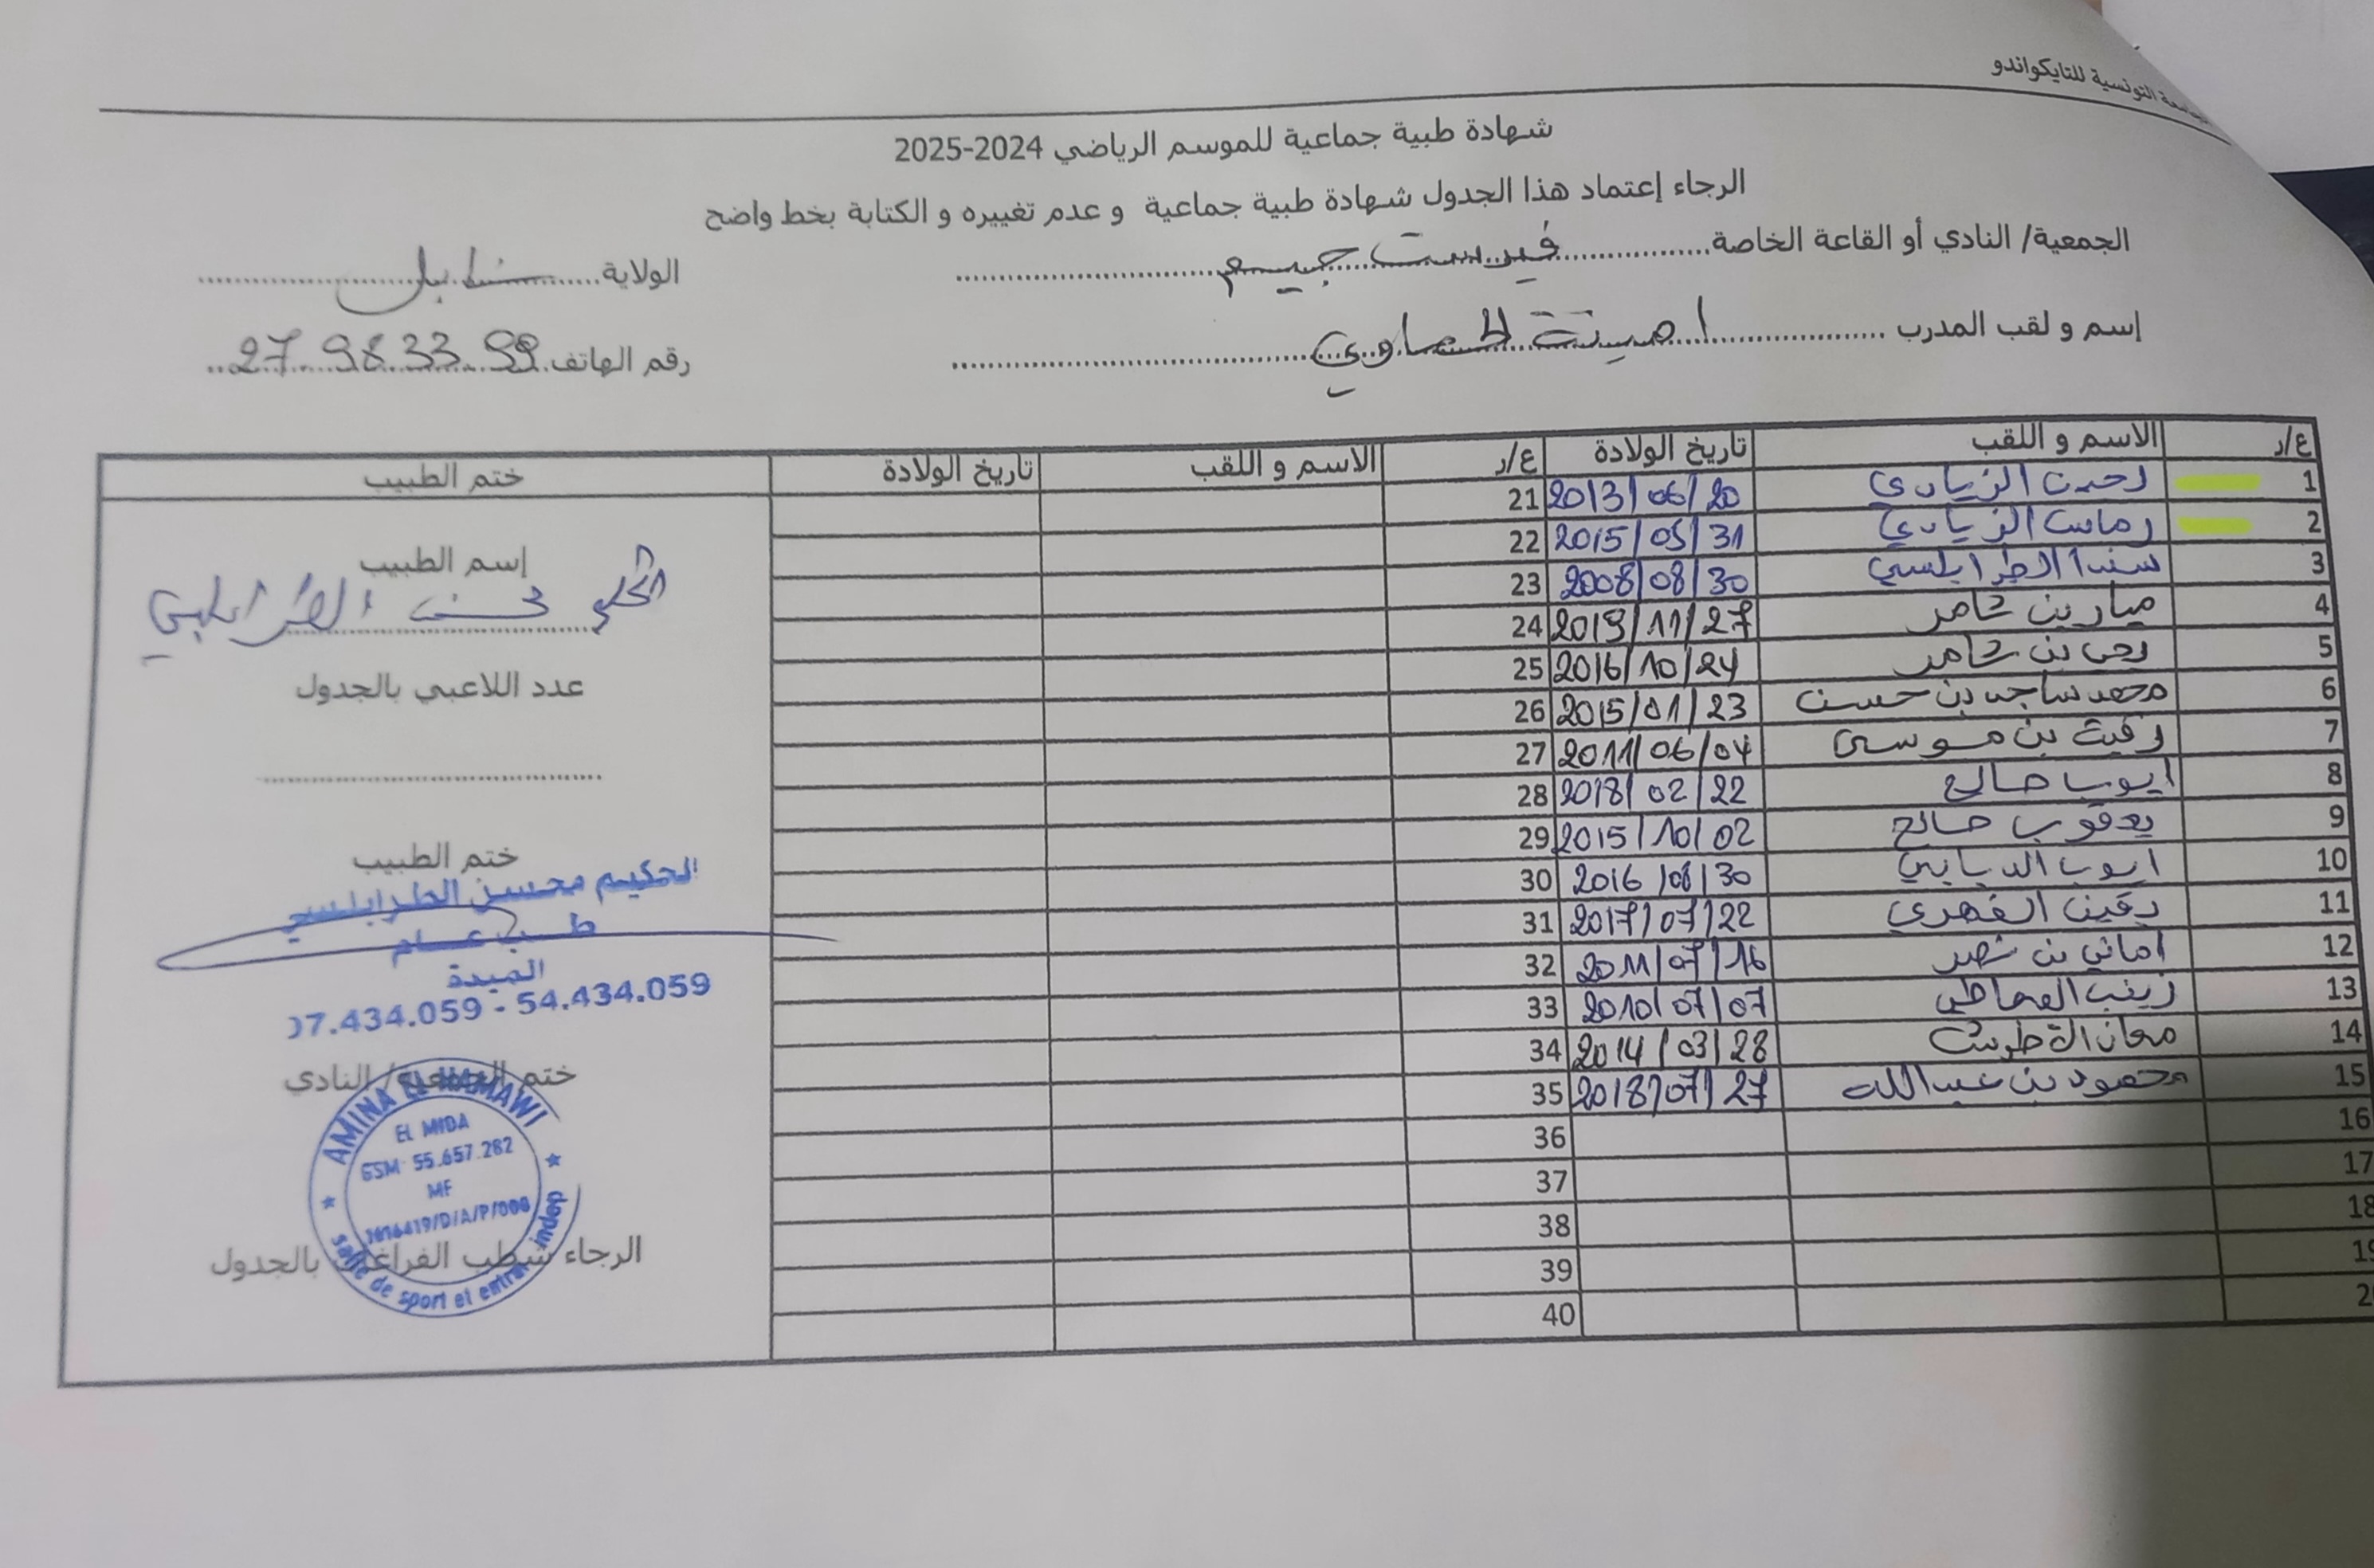 الجامعة التونسية للتايكواندو
شهادة طبية جماعية للموسم الرياضي 2024-2025
الرجاء إعتماد هذا الجدول شهادة طبية جماعية و عدم تغييره و الكتابة بخط واضح
الجمعية/ النادي أو القاعة الخاصة فيرست جيم الولاية نابل
إسم و لقب المدرب امينة الحماوي رقم الهاتف 27 98 33 99
ع/ر الاسم و اللقب تاريخ الولادة ع/ر الاسم و اللقب تاريخ الولادة ختم الطبيب
1 الزيادي 2013/06/20 21
2 الزيادي 2015/05/31 22
3 سندا الاطرابلسي 2008/08/30 23
4 ميار بن عامر 2019/11/27 24
5 بن عامر 2016/10/24 25
6 محمد ساجد بن حسن 2015/01/23 26
7 بن موسى 2011/06/04 27
8 ايوب صالح 2018/02/22 28
9 يعقوب صالح 2015/10/02 29
10 ايوب الديابي 2016/08/30 30
11 يقين الفهري 2017/07/22 31
12 اماني بن نصر 2011/07/16 32
13 زينب 2010/07/07 33
14 2014/03/28 34
15 محمود بن عبد الله 2018/07/27 35
16 36
17 37
18 38
19 39
20 40
إسم الطبيب
محسن الطرابلسي
عدد اللاعبي بالجدول
ختم الطبيب
الحكيم محسن الطرابلسي
طب عام
الميدة
97.434.059 - 54.434.059
ختم الجمعية/ النادي
AMINA EL HAMAWI
EL MIDA
GSM 55.657.282
MF
/D/A/P/000
salle de sport et entrai. indep
الرجاء شطب الفراغات بالجدول